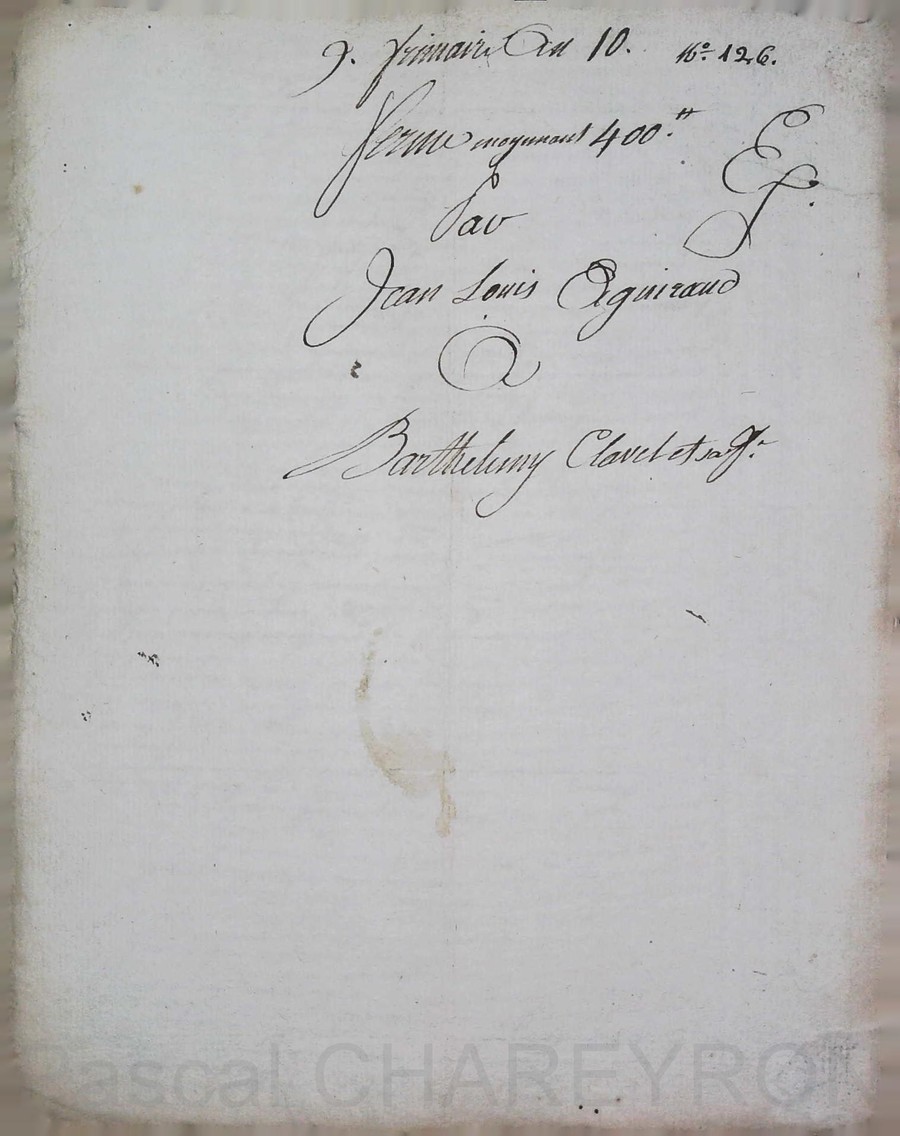 9. frimaire An 10. N.º 126.
ferme moyenant 400.tt
Ef.
Par
Jean Louis Aguiraud
A
Barthelemy Clavel et sa f.e
Pascal CHAREYRON